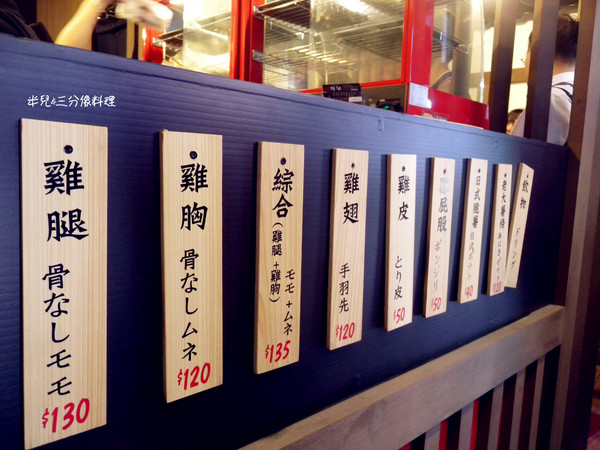 半兒ら三分像料理
雞腿
骨なしモモ
$130
雞胸
骨なしムネ
$120
綜合
(雞腿+雞胸)
モモ+ムネ
$135
雞翅
手羽先
$120
雞皮
とり皮
$50
雞屁股
ボンジリ
$50
日式脆薯
日式ポテト
$40
$120
飲物
ドリンク